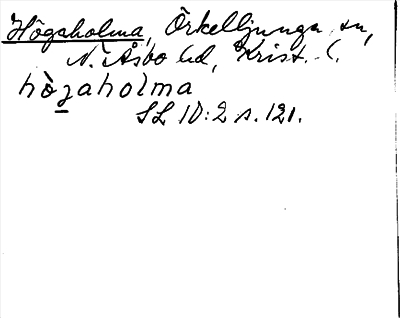 Högaholma, Örkelljunga sn,
N. Åsbo hd, Krist. l.
hògaholma
SL 10:2 s. 121.